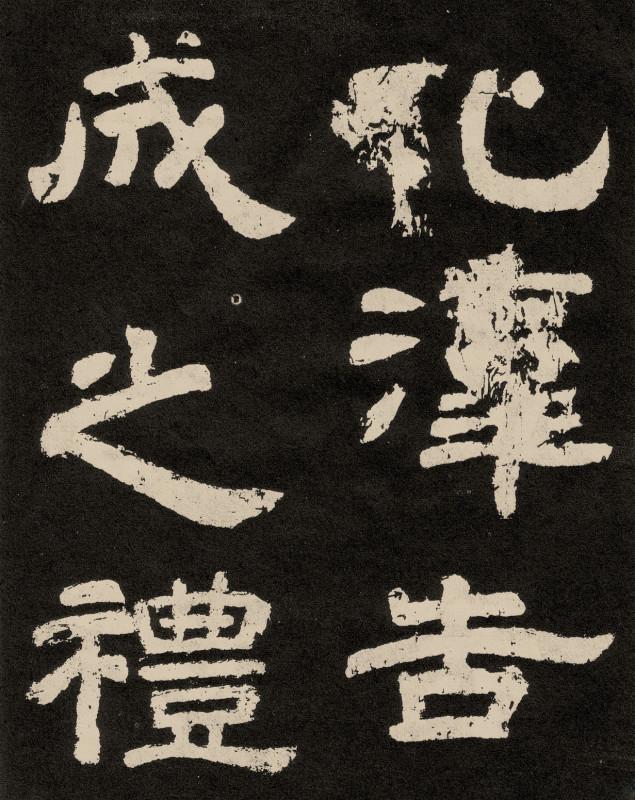 化澤告
成之禮